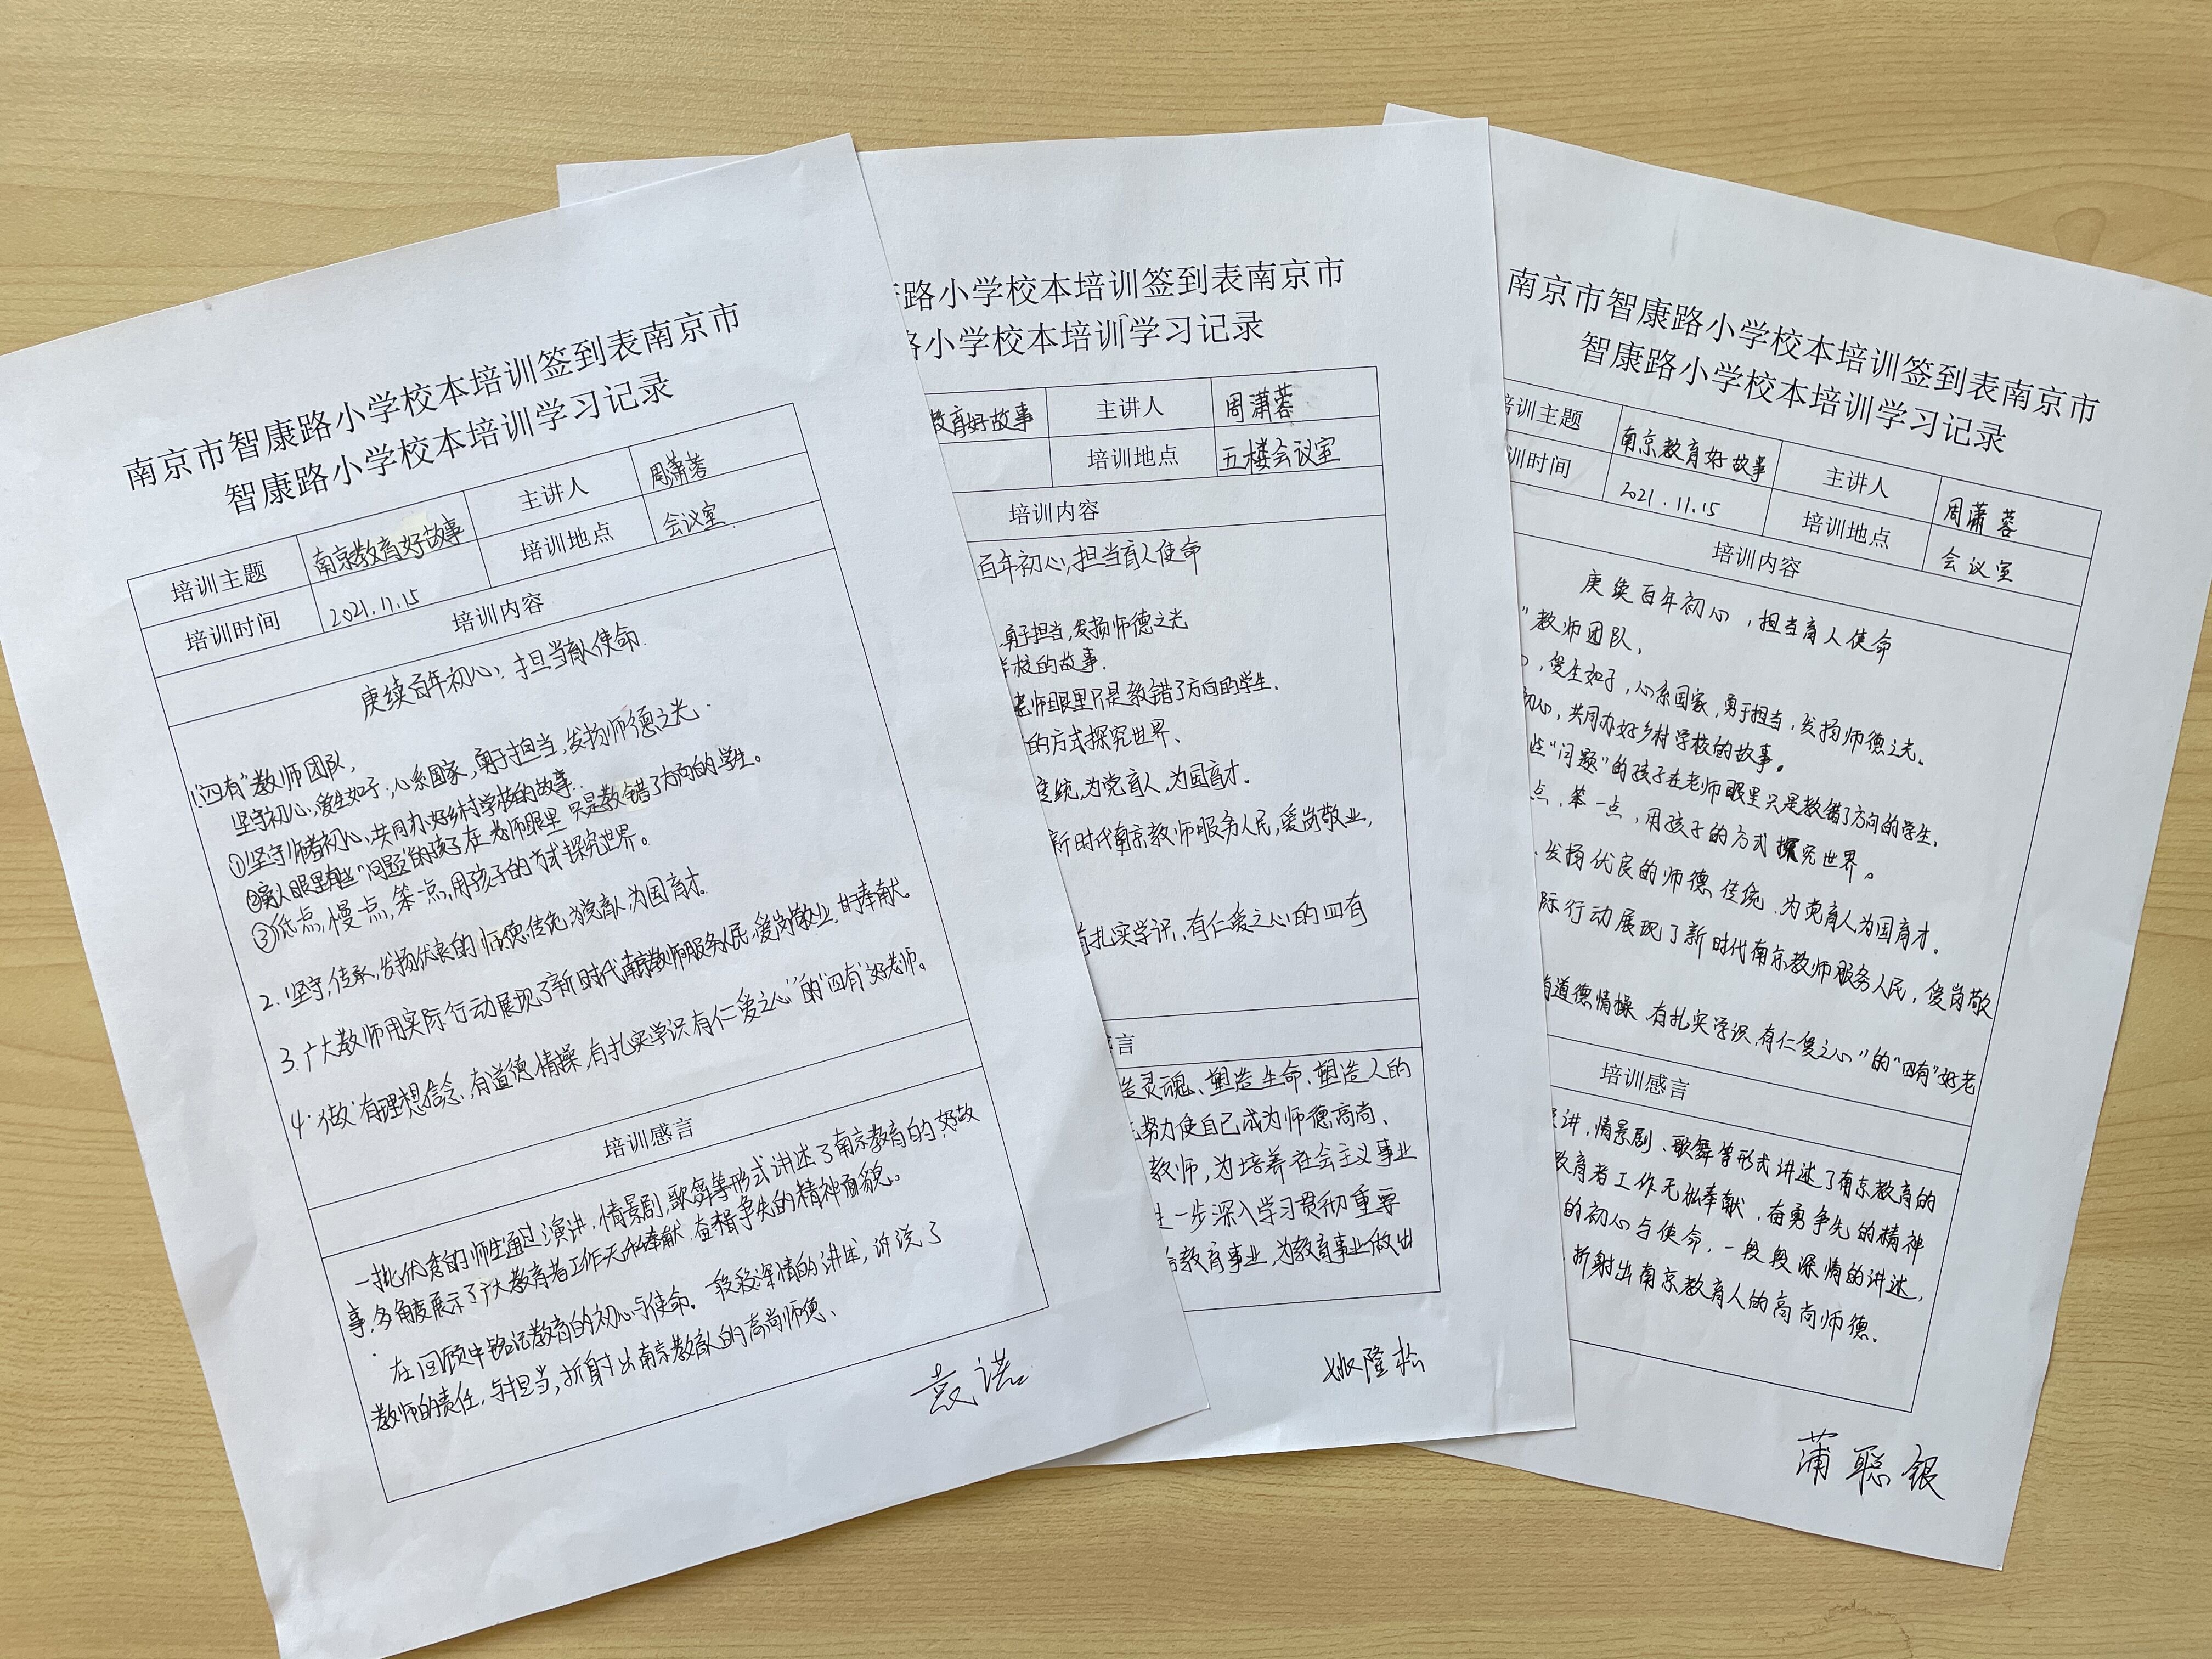 南京市智康路小学校本培训签到表南京市
智康路小学校本培训学习记录
培训主题 南京教育好故事 主讲人 周潇蓉
培训时间 2021.11.15 培训地点 会议室
培训内容
庚续百年初心，担当育人使命.
1."四有"教师团队，
坚守初心，爱生如子，心系国家，勇于担当，发扬师德之光.
①坚守师者初心、共同办好乡村学校的故事.
②旁人眼里有些"问题"的孩子在老师眼里只是教错了方向的学生。
③低点，慢点，笨一点，用孩子的方式探究世界。
2.坚守，传承，发扬优良的师德传统，为党育人，为国育才.
3.广大教师用实际行动展现了新时代南京教师服务人民，爱岗敬业，甘于奉献。
4."做"有理想信念、有道德情操，有扎实学识有仁爱之心"的"四有"好老师。
培训感言
一批优秀的师生通过演讲，情景剧，歌舞等形式讲述了南京教育的好故
事，多角度展示了广大教育者工作无私奉献、奋楫争先的精神面貌。
在回顾中铭记教育的初心与使命。一段段深情的讲述，诉说了
教师的责任，与担当，折射出南京教育人的高尚师德、
袁诺
路小学校本培训签到表南京市
小学校本培训学习记录
教育好故事 主讲人 周潇蓉
培训地点 五楼会议室
培训内容
百年初心，担当育人使命
勇于担当，发扬师德之光
学校的故事.
老师眼里只是教错了方向的学生.
的方式探究世界、
传统，为党育人，为国育才.
新时代南京教师服务人民，爱岗敬业，
有扎实学识、有仁爱之心的四有
感言
造灵魂、塑造生命、塑造人的
努力使自己成为师德高尚、
教师，为培养社会主义事业
进一步深入学习贯彻重要
教育事业，为教育事业做出
姚隆松
南京市智康路小学校本培训签到表南京市
智康路小学校本培训学习记录
培训主题 南京教育好故事 主讲人 周潇蓉
训时间 2021.11.15 培训地点 会议室
培训内容
庚续百年初心，担当育人使命
"教师团队，
，爱生如子，心系国家，勇于担当，发扬师德之光。
初心，共同办好乡村学校的故事。
些"问题"的孩子在老师眼里只是教错了方向的学生.
点、笨一点，用孩子的方式探究世界。
、发扬优良的师德传统、为党育人为国育才.
际行动展现了新时代南京教师服务人民，爱岗敬
有道德情操、有扎实学识，有仁爱之心"的"四有"好老
培训感言
演讲，情景剧、歌舞等形式讲述了南京教育的
教育者工作无私奉献、奋勇争先的精神
的初心与使命，一段段深情的讲述，
，折射出南京教育人的高尚师德.
蒲聪银